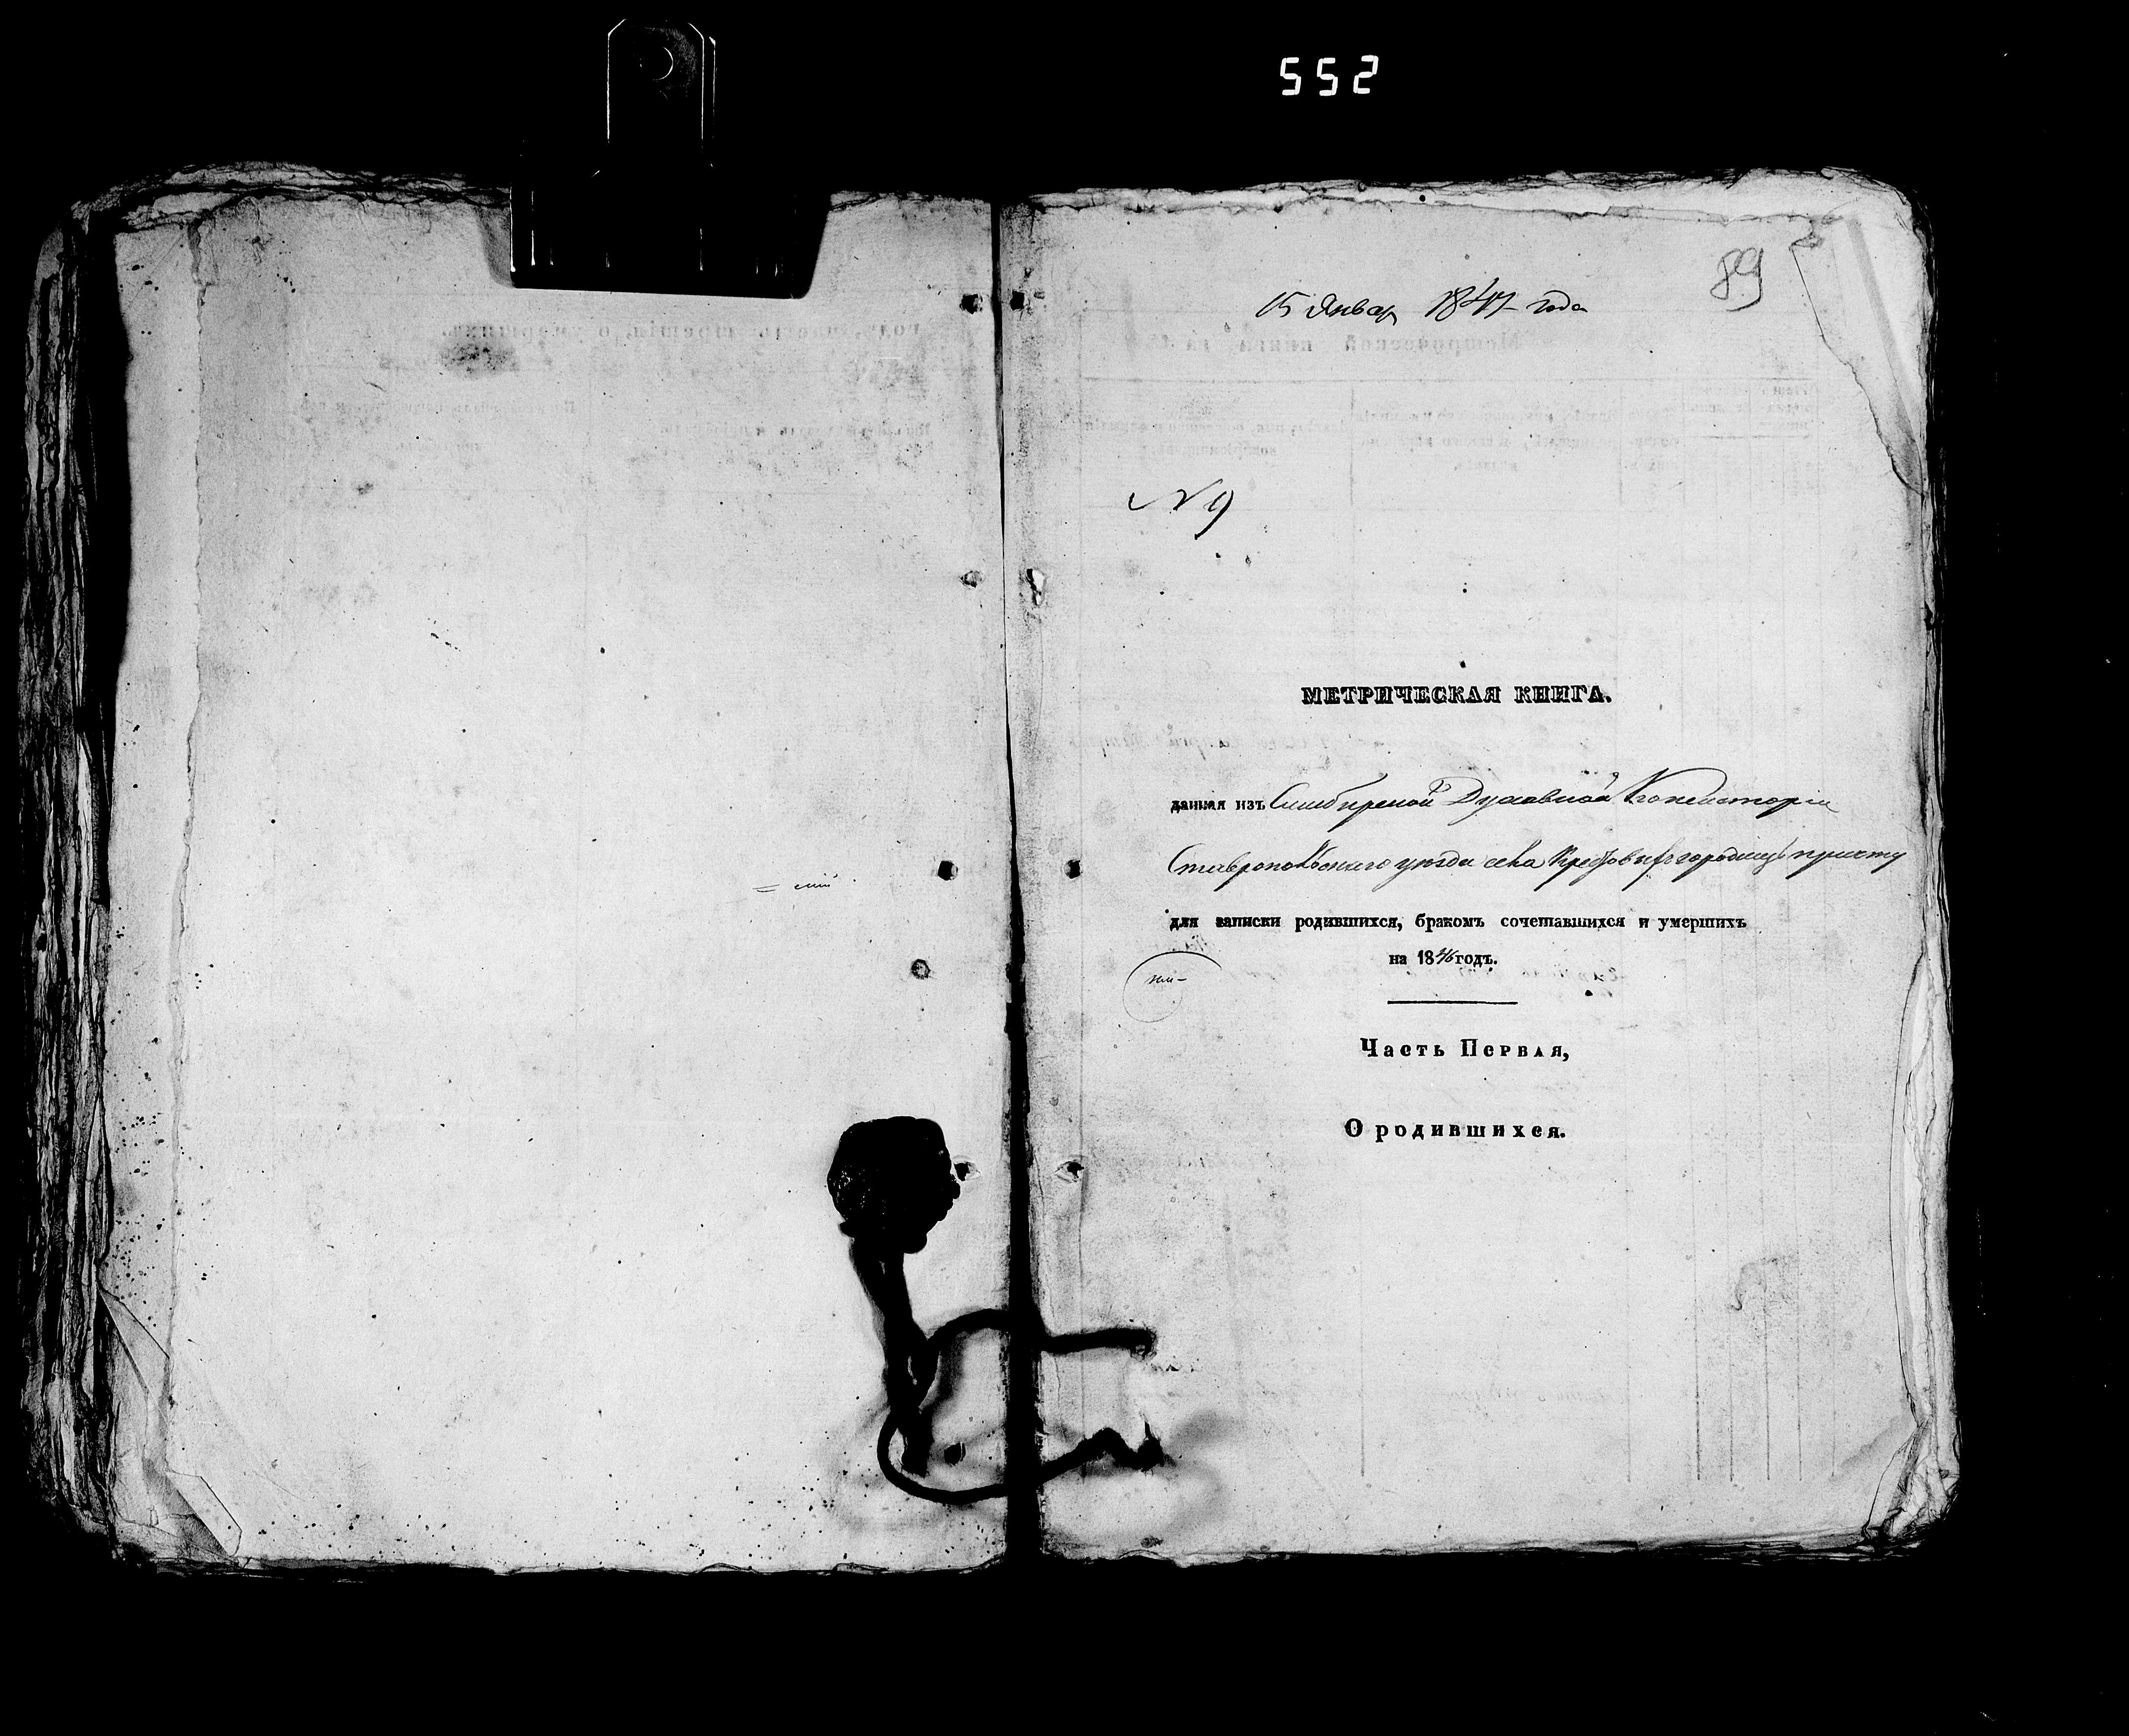 552
89
15 Январ 1847 года
N 9
МЕТРИЧЕСКАЯ КНИГА.
данная изъ Симбирской Духовной Консисторіи
Ставропольскаго уѣзда села Крестовыхъ городищь причту
для записки родившихся, бракомъ сочетавшихся и умершихъ
на 1846 годъ.
Часть Первая,
О родившихся.